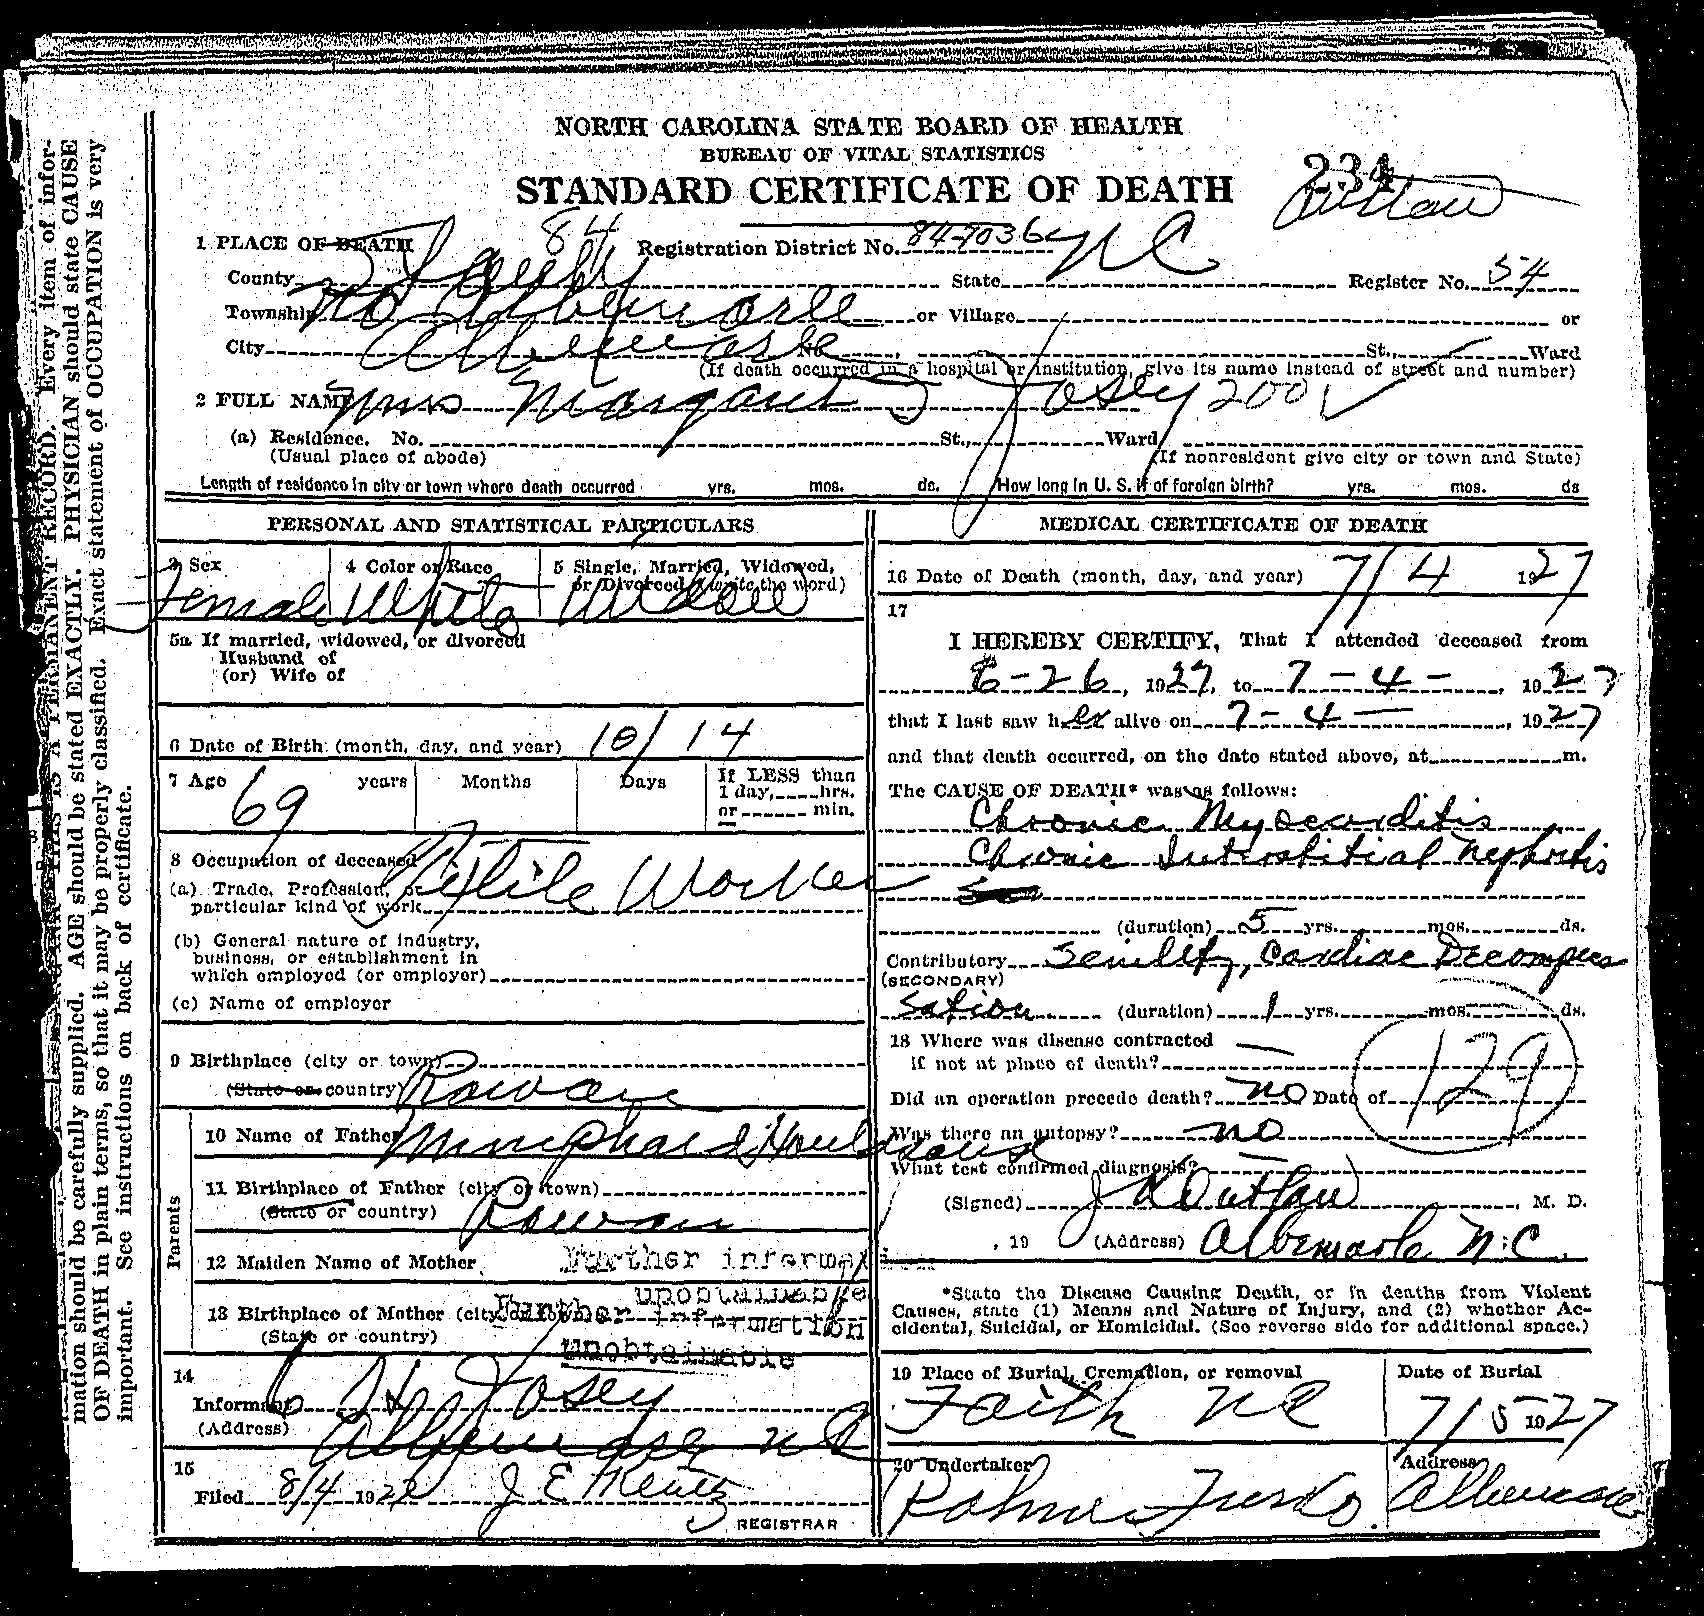 NORTH CAROLINA STATE BOARD OF HEALTH
BUREAU OF VITAL STATISTICS
STANDARD CERTIFICATE OF DEATH
234
Outlaw
84
1 PLACE OF DEATH Registration District No. 84-7036
County Stanly State N C Register No. 54
Township No Albemarle or Village or
City Albemarle No. St., Ward
(If death occurred in a hospital or institution, give its name instead of street and number)
2 FULL NAME Mrs Margaret Josey 200
(a) Residence. No. St., Ward
(Usual place of abode) (If nonresident give city or town and State)
Length of residence in city or town where death occurred yrs. mos. ds. How long in U. S. if of foreign birth? yrs. mos. ds
PERSONAL AND STATISTICAL PARTICULARS
3 Sex 4 Color or Race 5 Single, Married, Widowed,
or Divorced (write the word)
Female White Widow
5a If married, widowed, or divorced
Husband of
(or) Wife of
6 Date of Birth (month, day, and year) 10/14
7 Age years Months Days If LESS than
1 day, hrs.
69 or min.
8 Occupation of deceased
(a) Trade, Profession, or
particular kind of work Textile Worker
(b) General nature of industry,
business, or establishment in
which employed (or employer)
(c) Name of employer
9 Birthplace (city or town)
(State or country) Rowan
Parents
10 Name of Father
11 Birthplace of Father (city or town)
(State or country) Rowan
12 Maiden Name of Mother Further information
unobtainable
13 Birthplace of Mother (city or town) Further information
(State or country)
unobtainable
14
Informant Josey
(Address) Albemarle N C
15
Filed 8/4 192 J E
REGISTRAR
MEDICAL CERTIFICATE OF DEATH
16 Date of Death (month, day, and year) 7/4 1927
17
I HEREBY CERTIFY, That I attended deceased from
6-26, 1927, to 7-4-, 1927
that I last saw her alive on 7-4-, 1927
and that death occurred, on the date stated above, at m.
The CAUSE OF DEATH* was as follows:
Chronic Myocarditis
Chronic Interstitial Nephritis
(duration) 5 yrs. mos. ds.
Contributory Senility, Cardiac Decompen
(SECONDARY)
sation (duration) 1 yrs. mos. ds.
18 Where was disease contracted
if not at place of death?
Did an operation precede death? no Date of
129
Was there an autopsy? no
What test confirmed diagnosis?
(Signed) Outlaw, M. D.
, 19 (Address) Albemarle N.C.
*State the Disease Causing Death, or in deaths from Violent
Causes, state (1) Means and Nature of Injury, and (2) whether Ac-
cidental, Suicidal, or Homicidal. (See reverse side for additional space.)
19 Place of Burial, Cremation, or removal Date of Burial
Faith N C 7/5 1927
20 Undertaker Address
Albemarle
mation should be carefully supplied. AGE should be stated EXACTLY. PHYSICIAN should state CAUSE
OF DEATH in plain terms, so that it may be properly classified. Exact statement of OCCUPATION is very
important. See instructions on back of certificate.